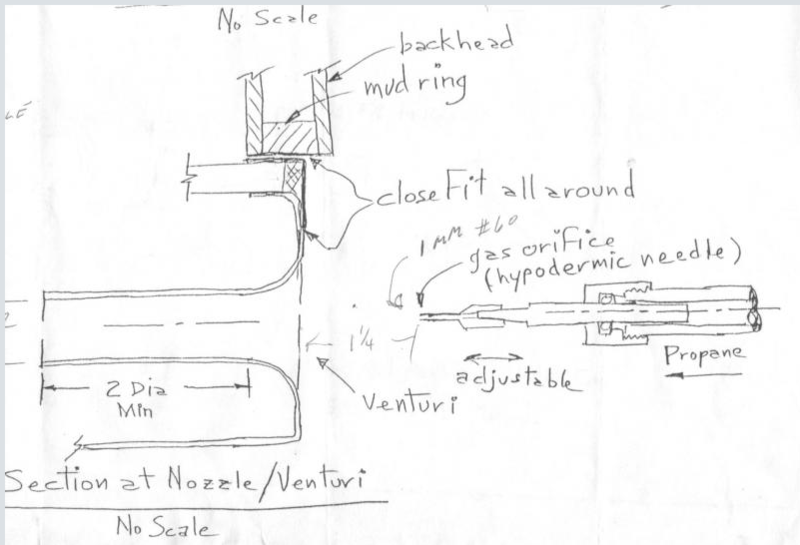 No Scale
backhead
mud ring
close Fit all around
1 MM #60
gas orifice
(hypodermic needle)
1 1/4
Propane
adjustable
2 Dia
Min
Venturi
Section at Nozzle/Venturi
No Scale